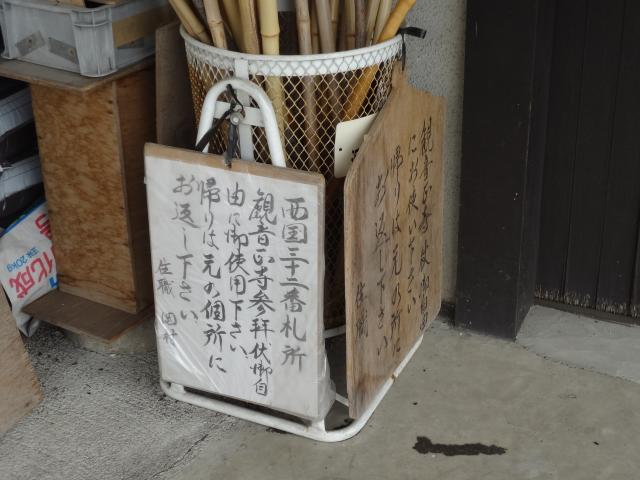 西国三十二番札所
観音正寺参拝杖御自
由に御使用下さい
帰りは元の個所に
お返し下さい
住職 岡村
観音正寺 杖御自由
にお使い下さい
帰りは元の個所
お返し下さい
住職
化成
20kg